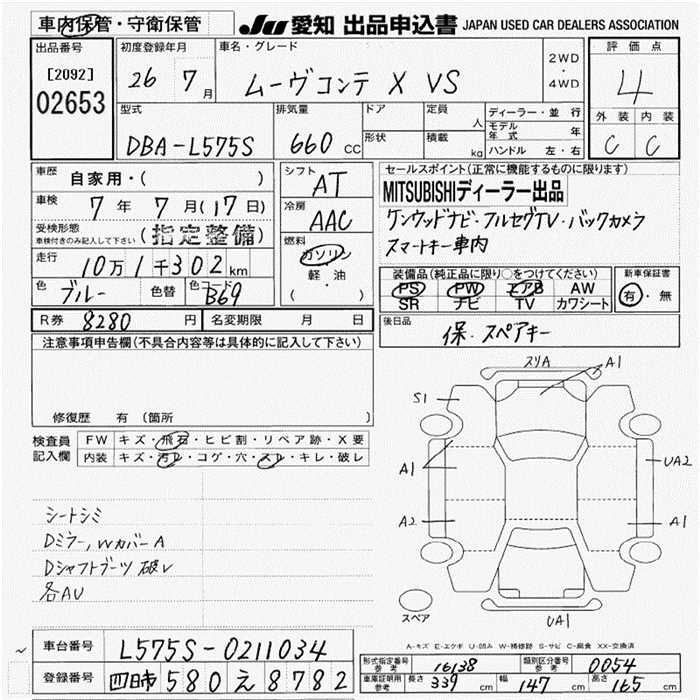 車内保管・守衛保管 JU 愛知 出品申込書 JAPAN USED CAR DEALERS ASSOCIATION
出品番号 初度登録年月 車名・グレード 2WD・4WD 評価点
[2092] 02653 26 7月 ムーヴコンテ X VS 4
型式 排気量 ドア 定員 人 ディーラー・並行 外装 内装
DBA-L575S 660 CC 形状 積載 kg モデル年式 年 C C
ハンドル 左・右
車歴 自家用・( ) シフト AT セールスポイント(正常に機能するものに限ります)
車検 7年 7月(17日) 冷房 AAC MITSUBISHIディーラー出品
受検形態 車検付きのみ記入して下さい (指定整備) ケンウッドナビ・フルセグTV・バックカメラ
走行 10万1千302km 燃料 ガソリン スマートキー車内
軽・油
( )
色 ブルー 色替 色コード B69 装備品(純正品に限り○をつけてください) 新車保証書
PS PW エアB AW 有・無
SR ナビ TV カワシート
R券 8280円 名変期限 月 日 後日品 保・スペアキー
注意事項申告欄(不具合内容等は具体的に記入して下さい)
修復歴 有 (箇所
検査員記入欄 FW キズ・飛石・ヒビ割・リペア跡・X要
内装 キズ・汚レ・コゲ・穴・スレ・キレ・破レ
スリA A1
S1
A1 UA2
A2 A1
スペア UA1
シートシミ
Dミラー,WカバーA
Dシャフトブーツ 破レ
各AU
A-キズ E-エクボ U-凹み W-補修跡 S-サビ C-腐食 XX-交換済
車台番号 L575S-0211034
型式指定番号 参考 16138 類別区分番号 参考 0054
登録番号 四日市 580 え 8782
車庫証明用 参考 長さ 339 cm 幅 147 cm 高さ 165 cm